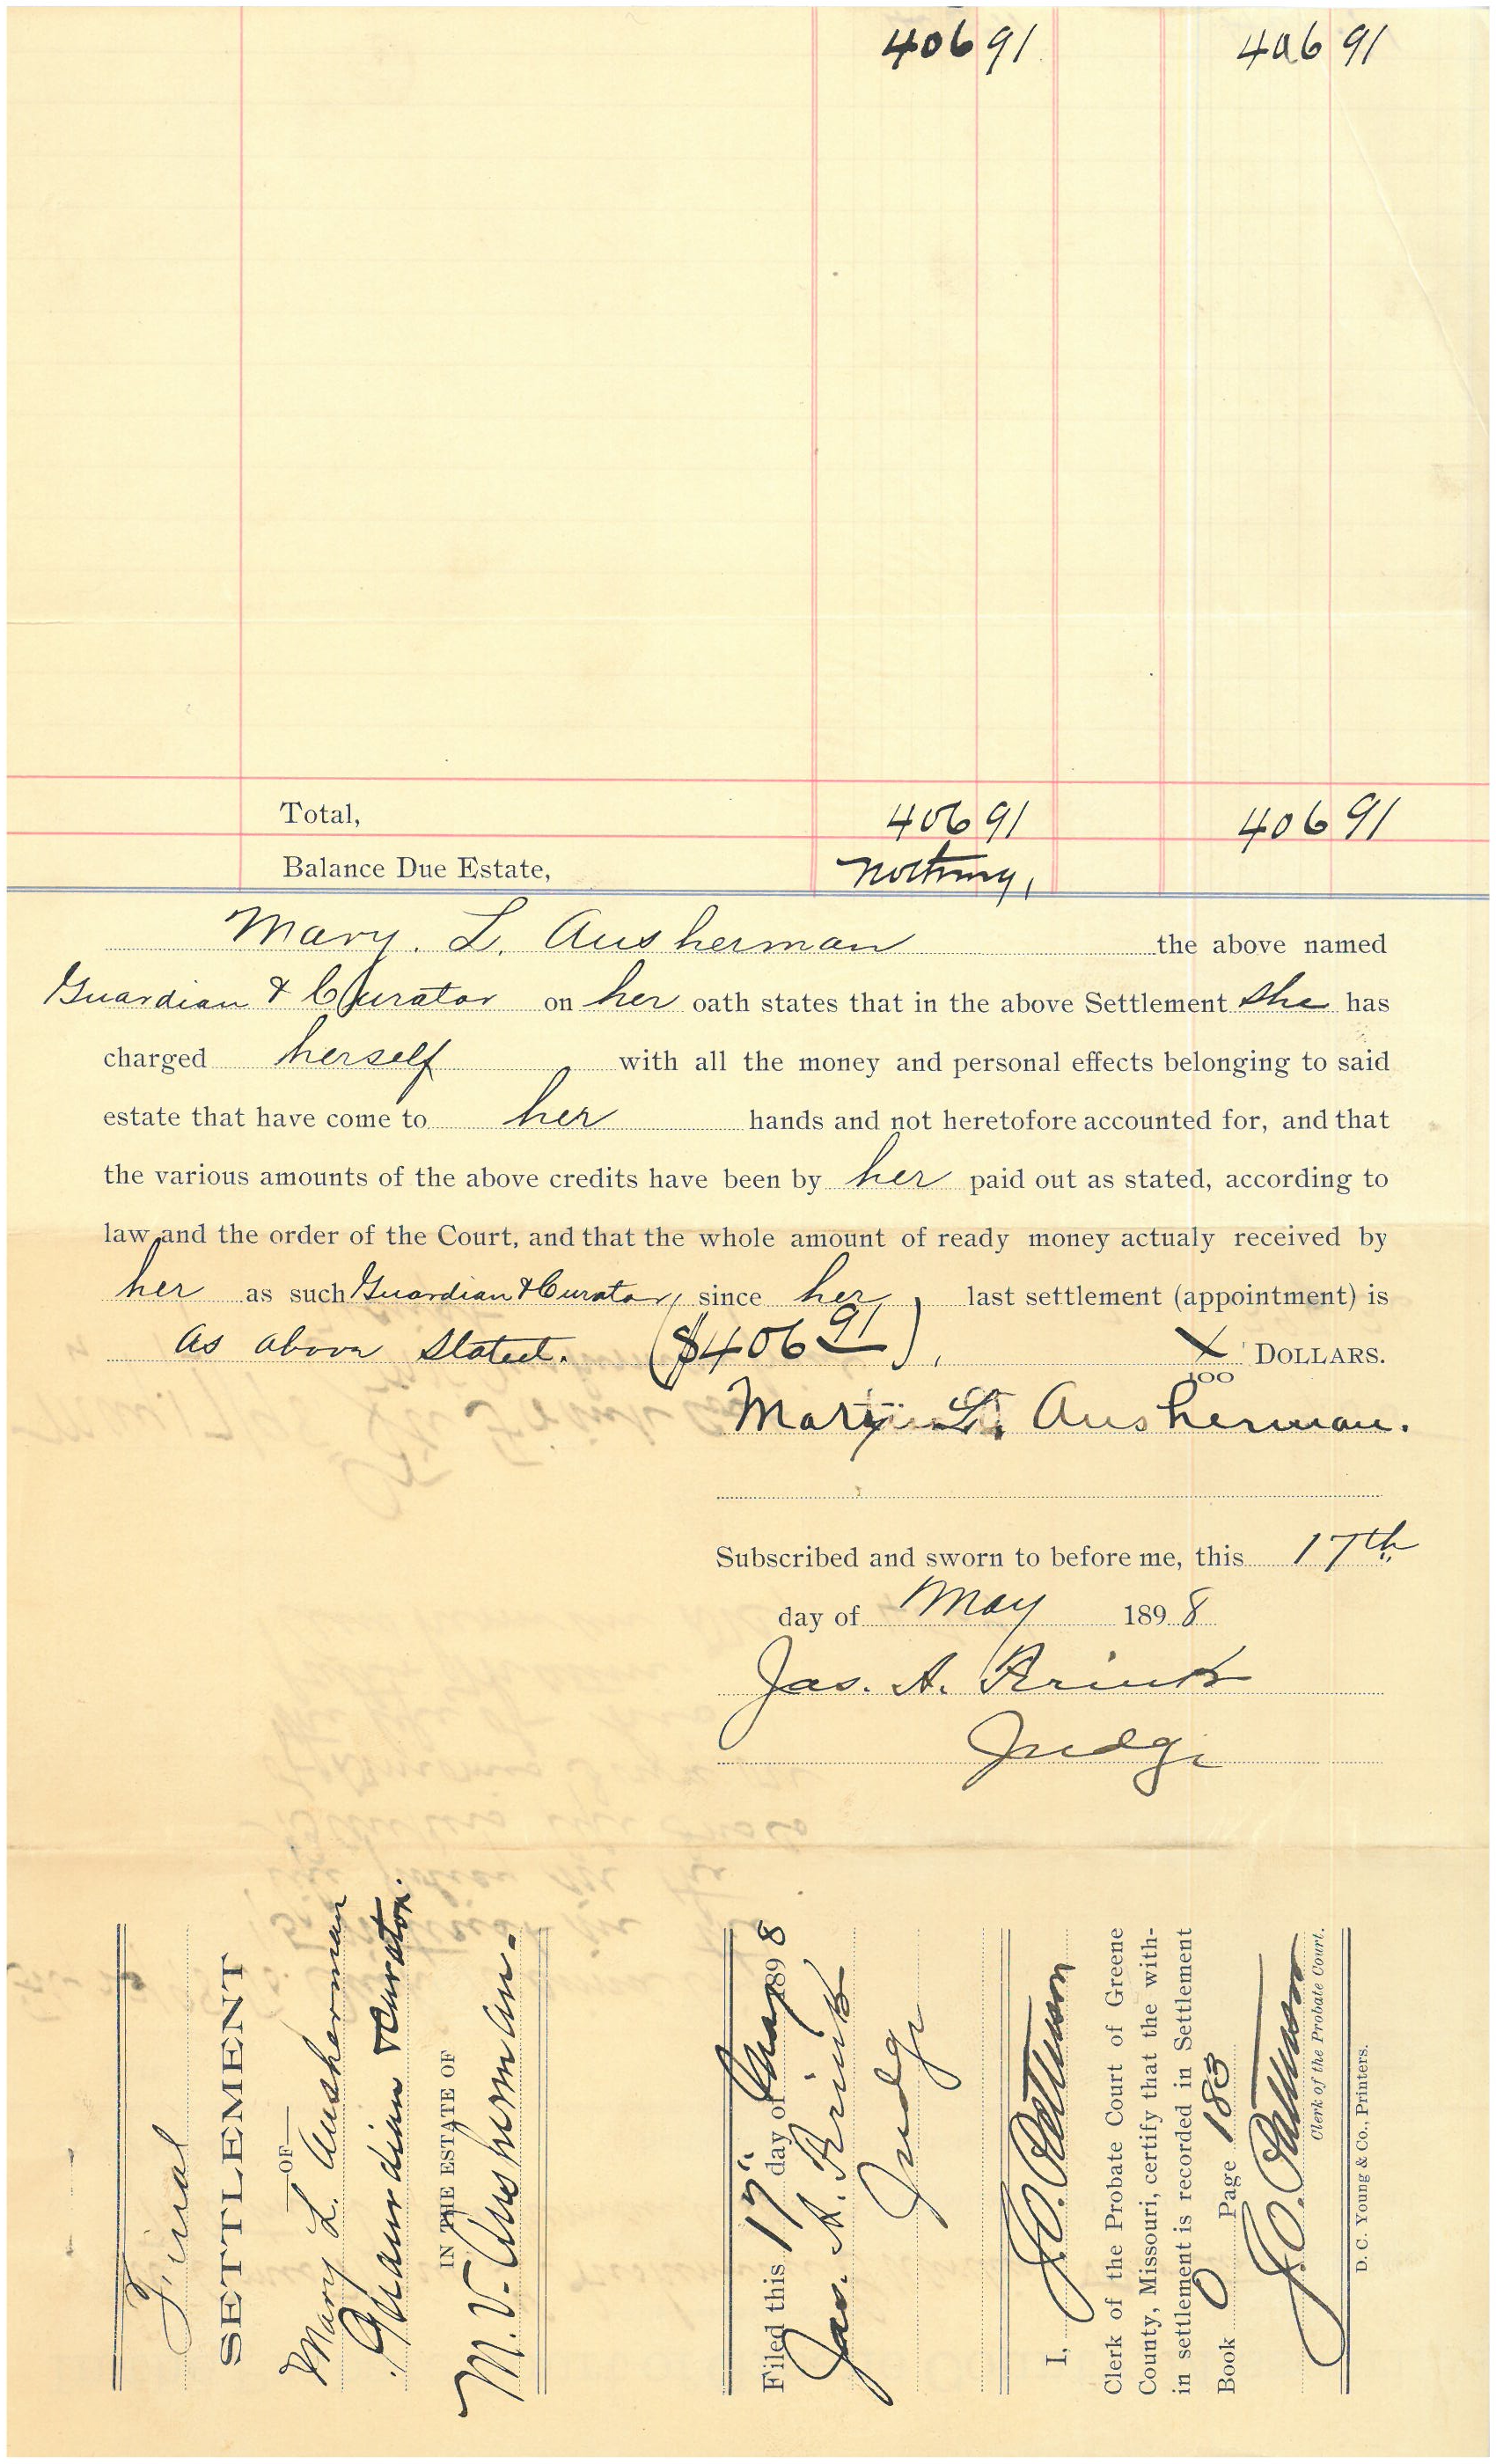 406 91 406 91
Total, 406 91 406 91
Balance Due Estate, Nothing,
Mary. L. Ausherman the above named
Guardian & Curator on her oath states that in the above Settlement she has
charged herself with all the money and personal effects belonging to said
estate that have come to her hands and not heretofore accounted for, and that
the various amounts of the above credits have been by her paid out as stated, according to
law and the order of the Court, and that the whole amount of ready money actualy received by
her as such Guardian & Curator, since her, last settlement (appointment) is
as above stated. ($406 91), X/100 DOLLARS.
Mary L. Ausherman.
Subscribed and sworn to before me, this 17th
day of May 1898
Jas. A.
Judge
Final
SETTLEMENT
—OF—
Mary L. Ausherman
Guardian & Curator.
IN THE ESTATE OF
M. V. Ausherman.
Filed this 17" day of May 1898
Jas. A.
Judge
I, J.O.
Clerk of the Probate Court of Greene
County, Missouri, certify that the with-
in settlement is recorded in Settlement
Book O Page 183
J.O.
Clerk of the Probate Court.
D. C. Young & Co., Printers.